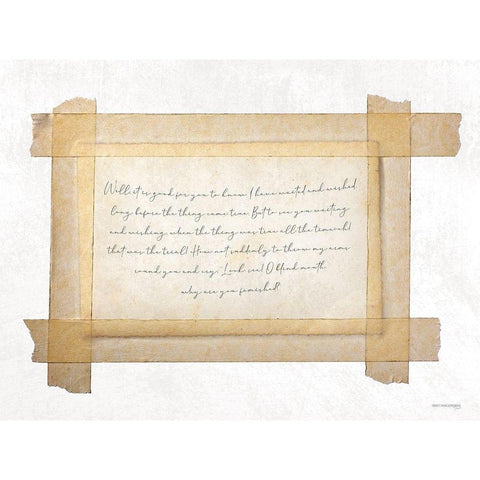 Well it is good for you to know I have waited and wished
long before the thing came true But to see you waiting
and wishing, when the thing was true all the time oh!
that was the trial! How not suddenly to throw my arms
round you and cry, Look see! O blind mouth
why are you famished?